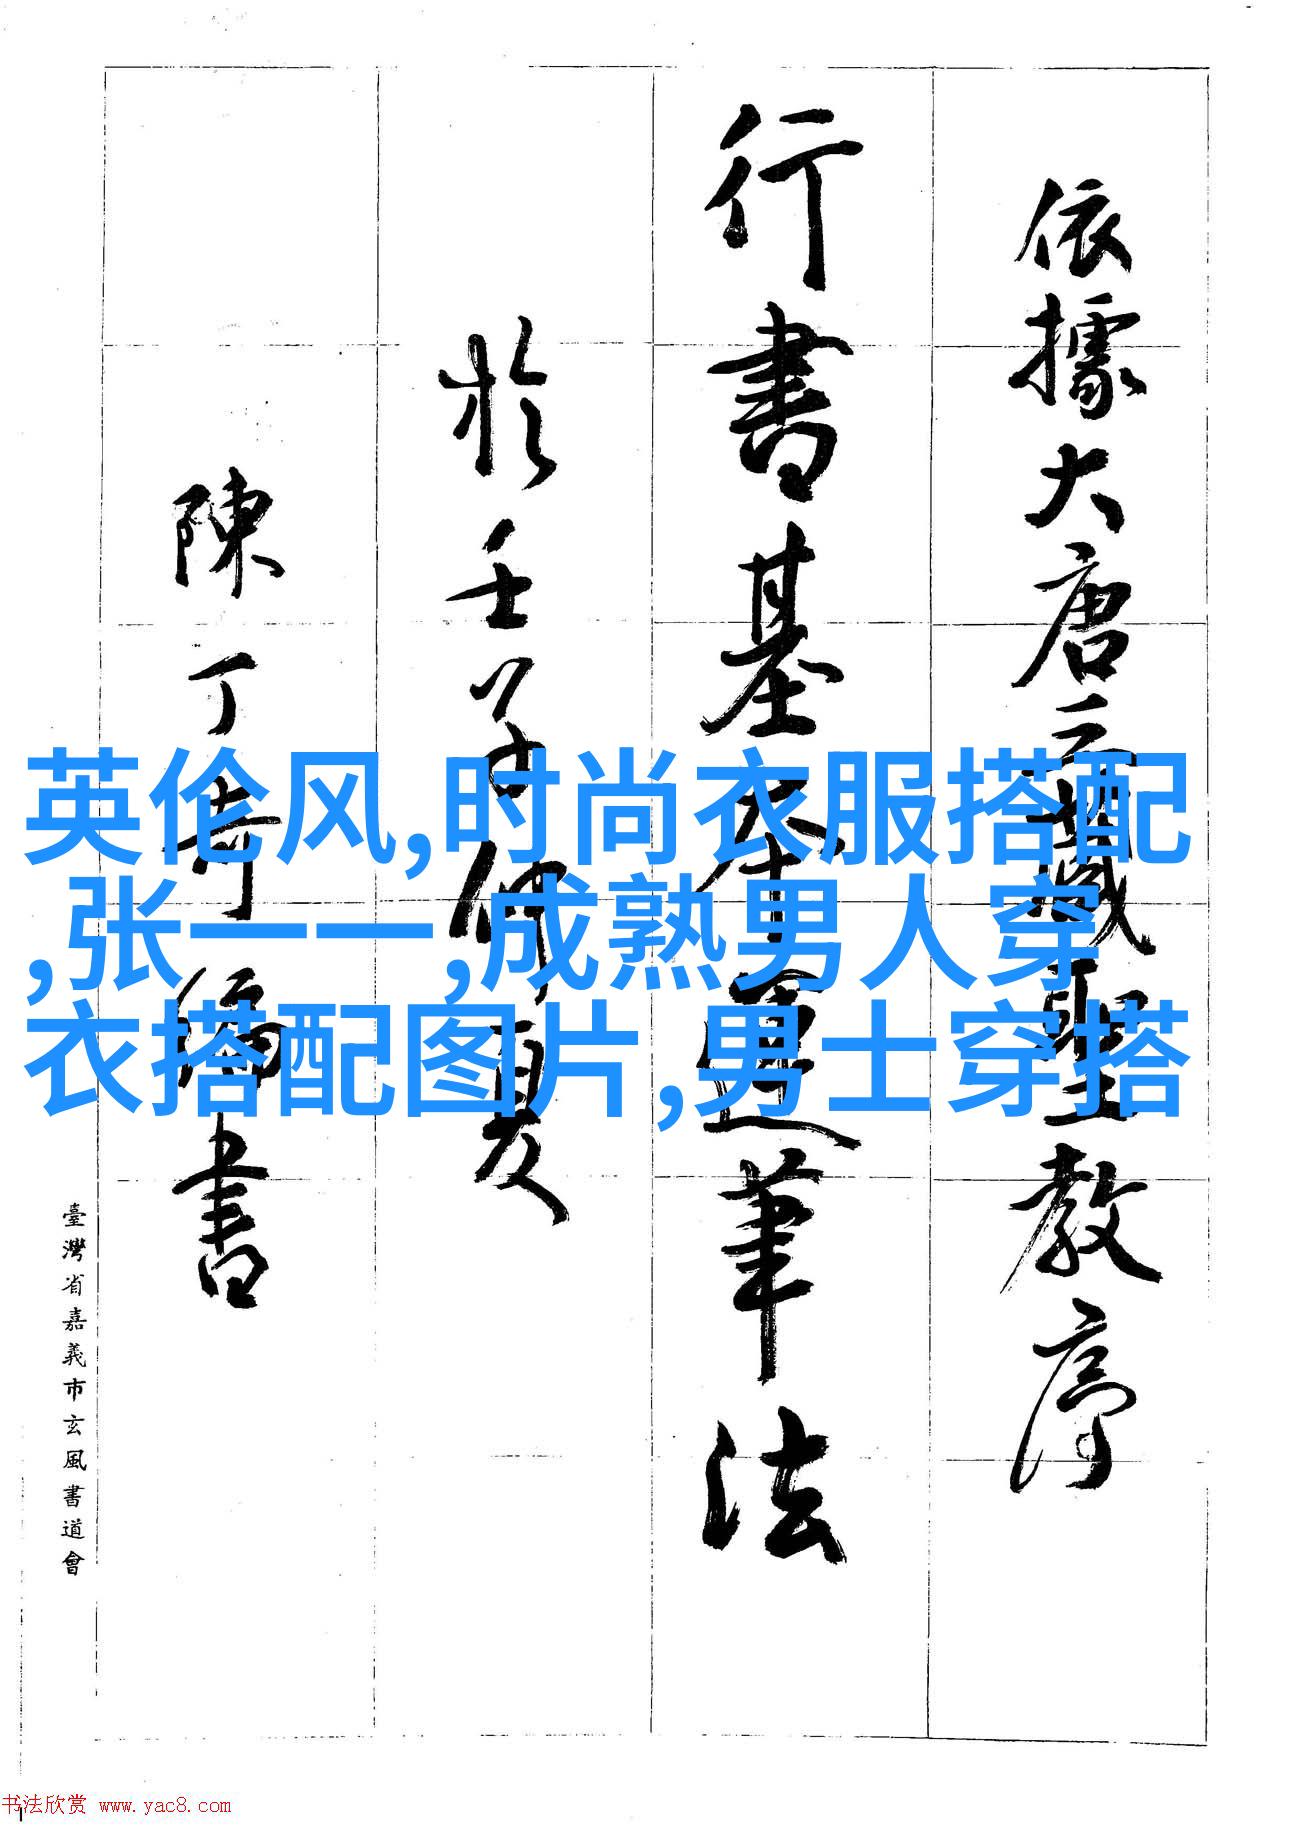 依據大唐三藏聖教序
行書基本運筆法
於壬子仲夏
陳丁奇編書
臺灣省嘉義市玄風書道會
英伦风,时尚衣服搭配
,张一一,成熟男人穿
衣搭配图片,男士穿搭
书法欣赏 www.yac8.com
1